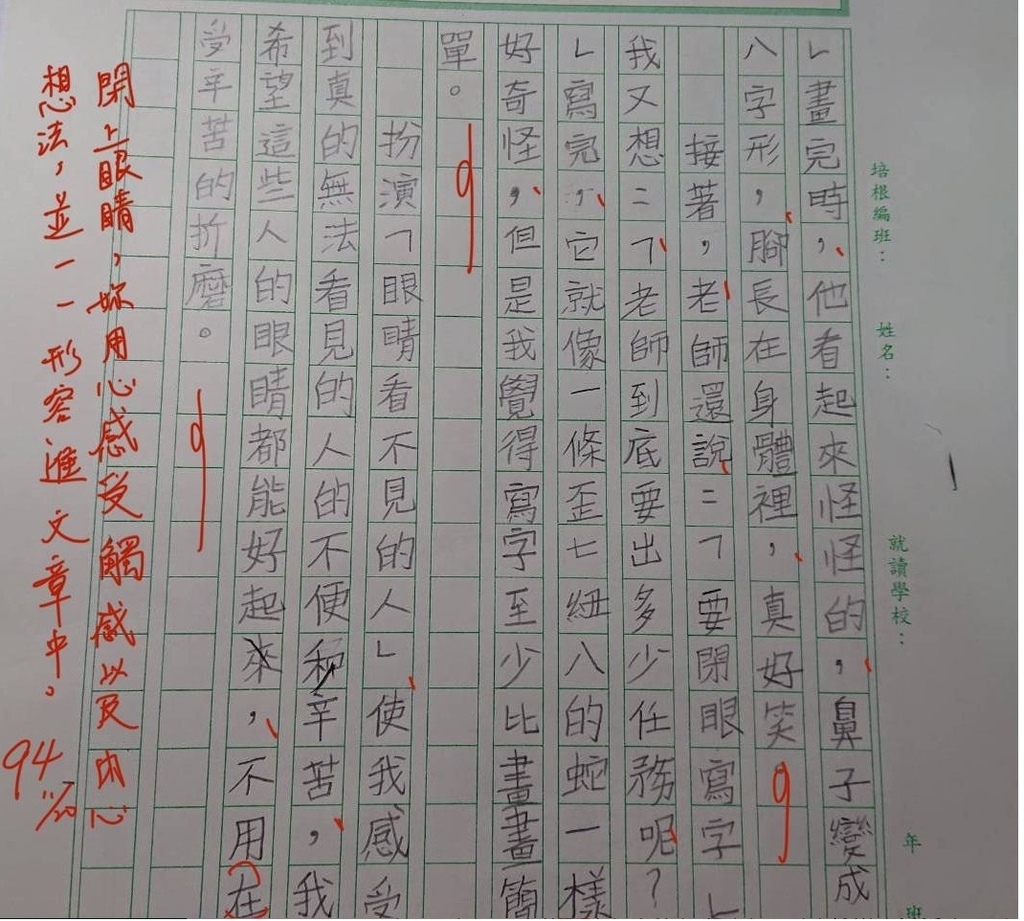 」畫完時,他看起來怪怪的,鼻子變成
八字形,腳長在身體裡,真好笑
接著,老師還說:「要閉眼寫字」
我又想:「老師到底要出多少任務呢?
」寫完,它就像一條歪七紐八的蛇一樣
好奇怪,但是我覺得寫字至少比畫畫簡
單。
扮演「眼睛看不見的人」使我感受
到真的無法看見的人的不便和辛苦,我
希望這些人的眼睛都能好起來,不用在
受辛苦的折磨。
閉上眼睛,妳用心感受觸感以及內心
想法,並一一形容進文章中。
94
11/20
培根編班:
姓名:
就讀學校:
年
班